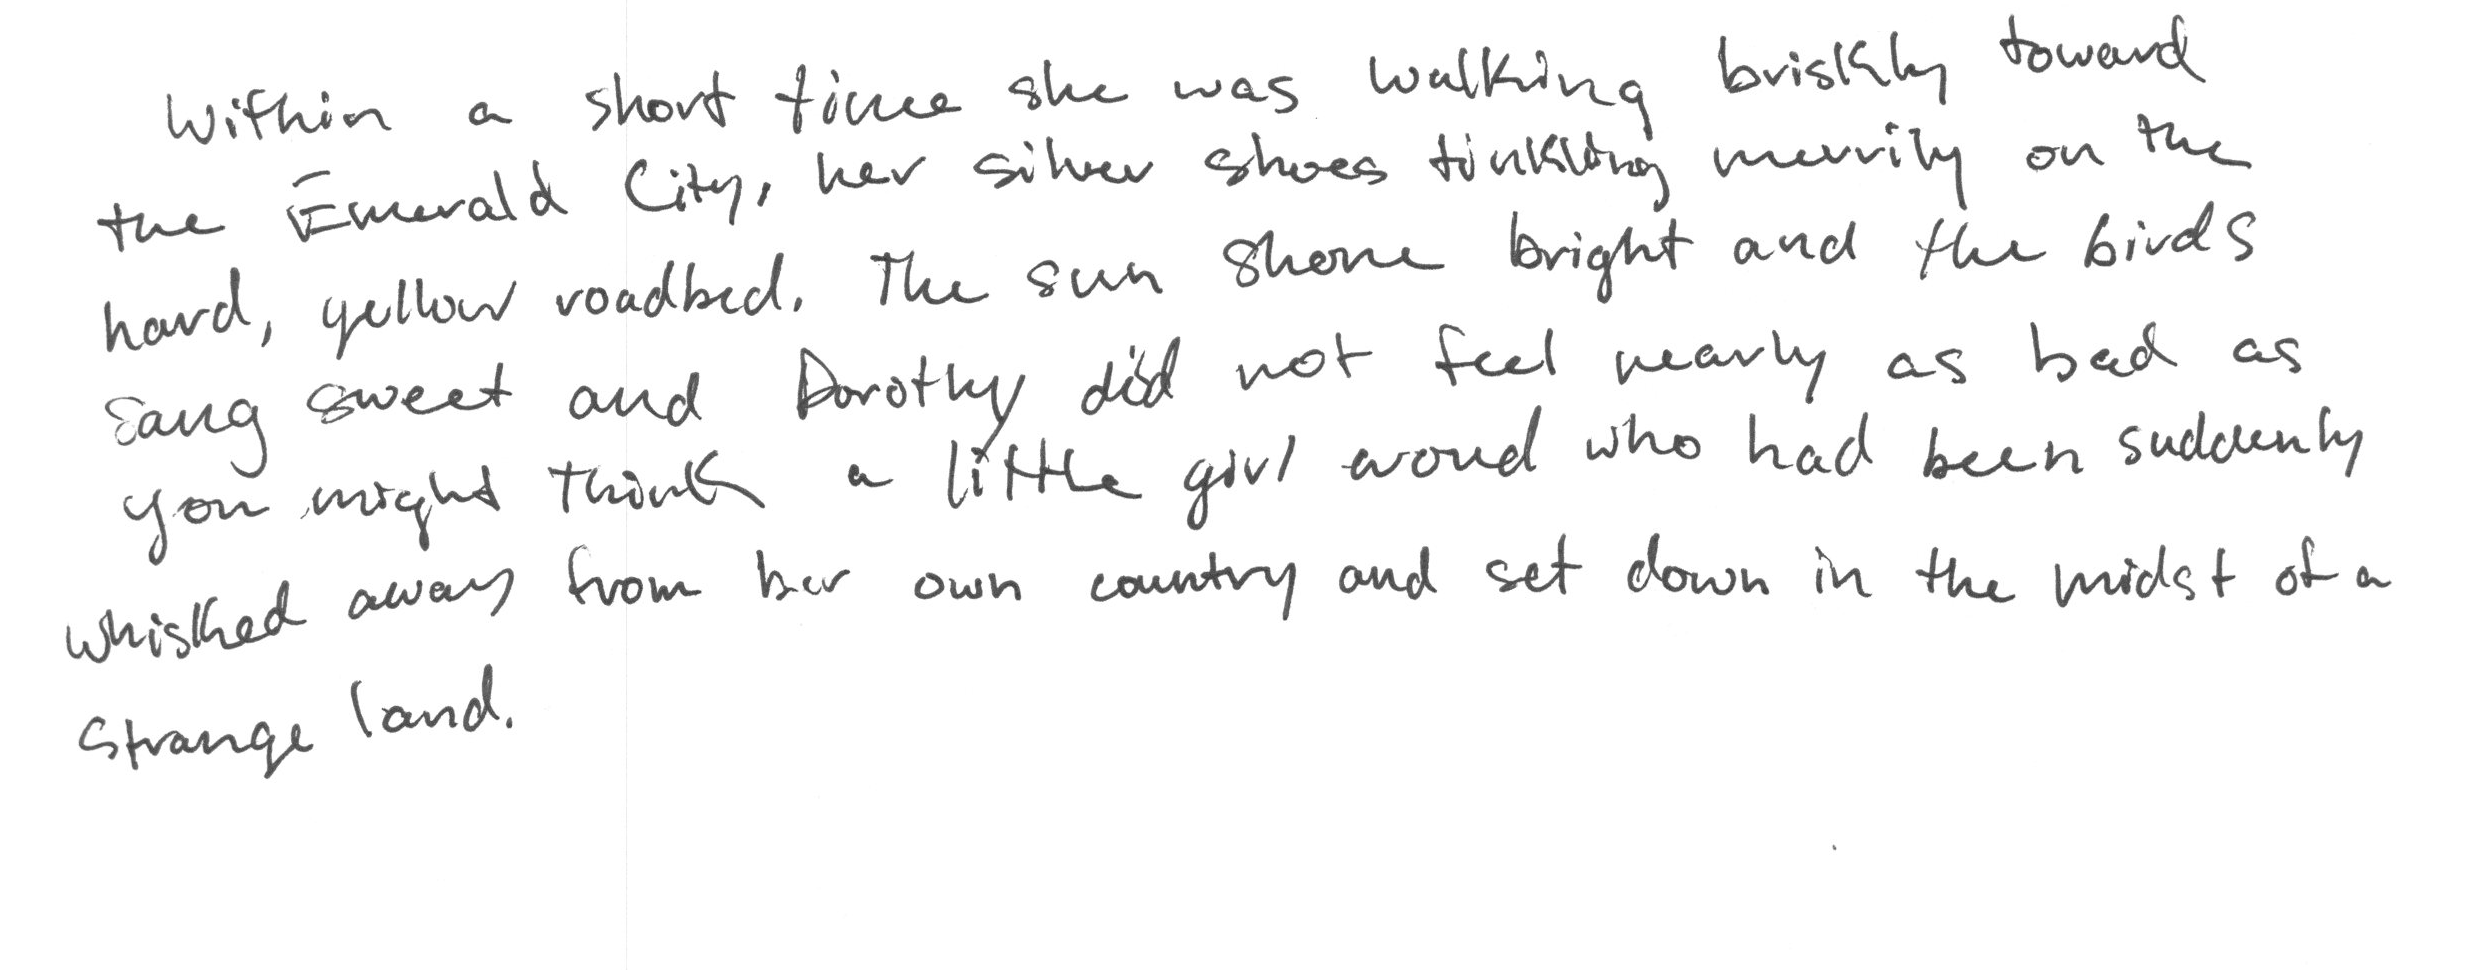 Within a short time she was walking briskly toward
the Emerald City, her silver shoes tinkling merrily on the
hard, yellow roadbed. The sun shone bright and the birds
sang sweet and Dorothy did not feel nearly as bad as
you might think a little girl woud who had been suddenly
whisked away from her own country and set down in the midst of a
strange land.